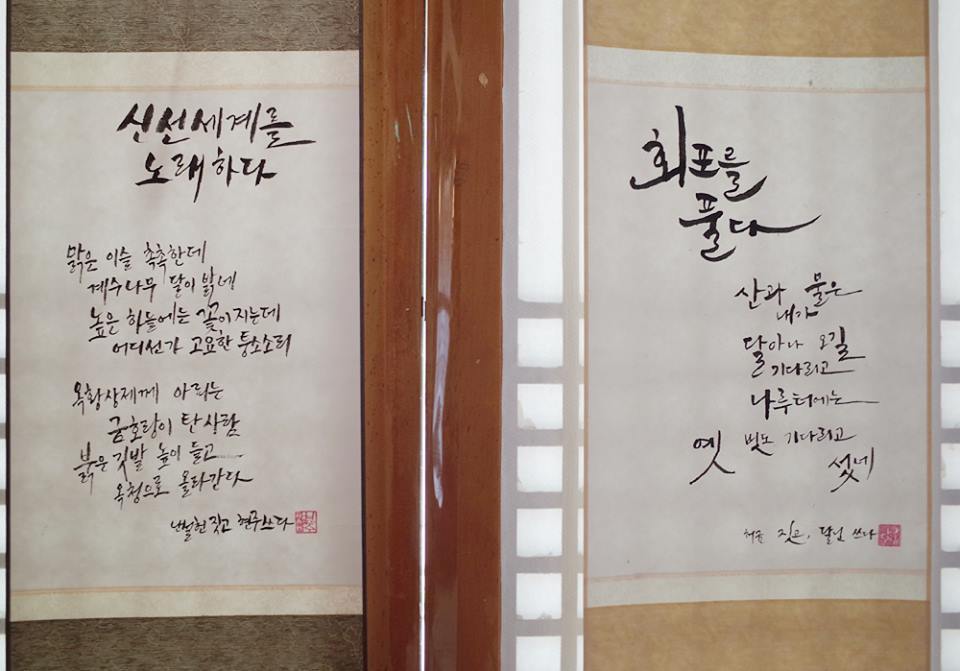 신선세계를
노래하다
맑은 이슬 촉촉한데
계수나무 달이 밝네
높은 하늘에는 꽃이 지는데
어디선가 고요한 퉁소소리
옥황상제께 아뢰는
금호랑이 탄 사람
붉은 깃발 높이 들고
옥청으로 올라간다
난설헌 짓고 현주 쓰다
회포를
풀다
산과 물은
내가
달아나 오길
기다리고
나루터에는
옛 벗도 기다리고
섰네
짓고, 달님 쓰다